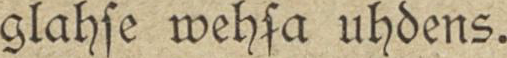 glahſe wehſa uhdens.